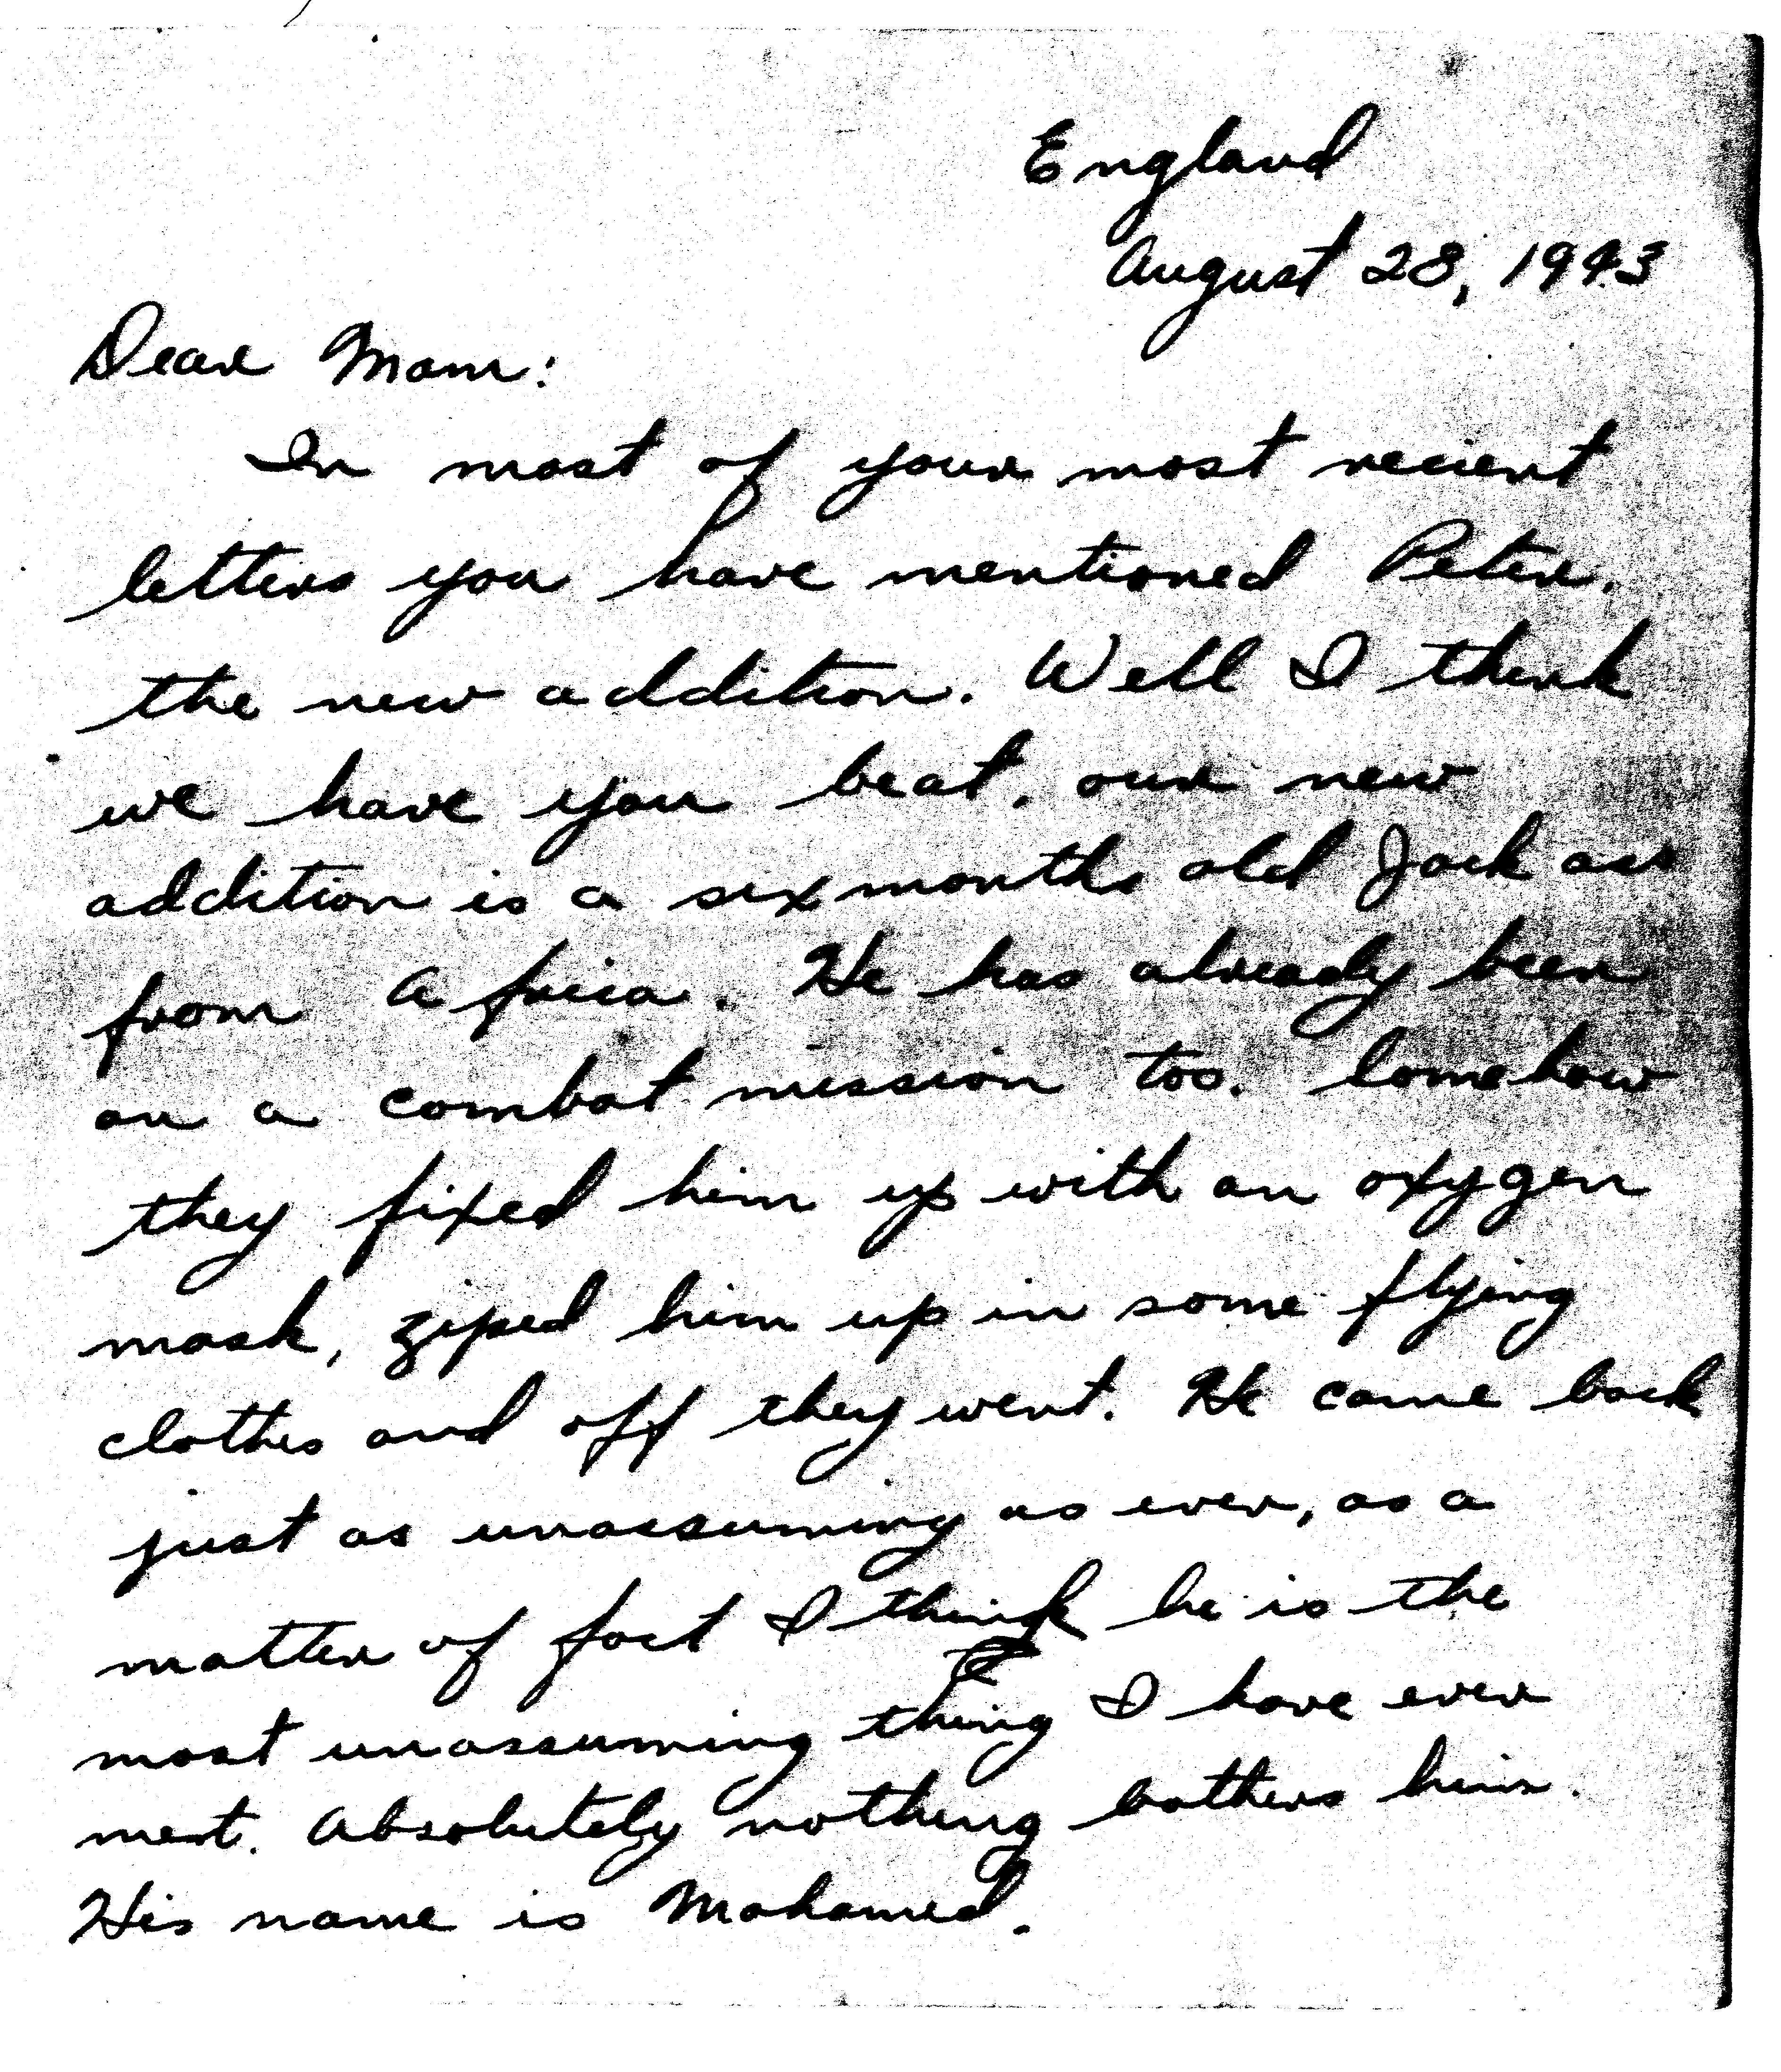 England
August 28, 1943
Dear Mom:
In most of your most recient
letters you have mentioned Peter,
the new addition. Well I think
we have you beat. our new
addition is a six months old Jack ass
from Africa. He has already been
on a combat mission too. Somehow
they fixed him up with an oxygen
mask, ziped him up in some flying
clothes and off they went. He came back
just as unassuming as ever, as a
matter of fact I think he is the
most unassuming thing I have ever
met. Absolutely nothing bothers him.
His name is Mohamed.